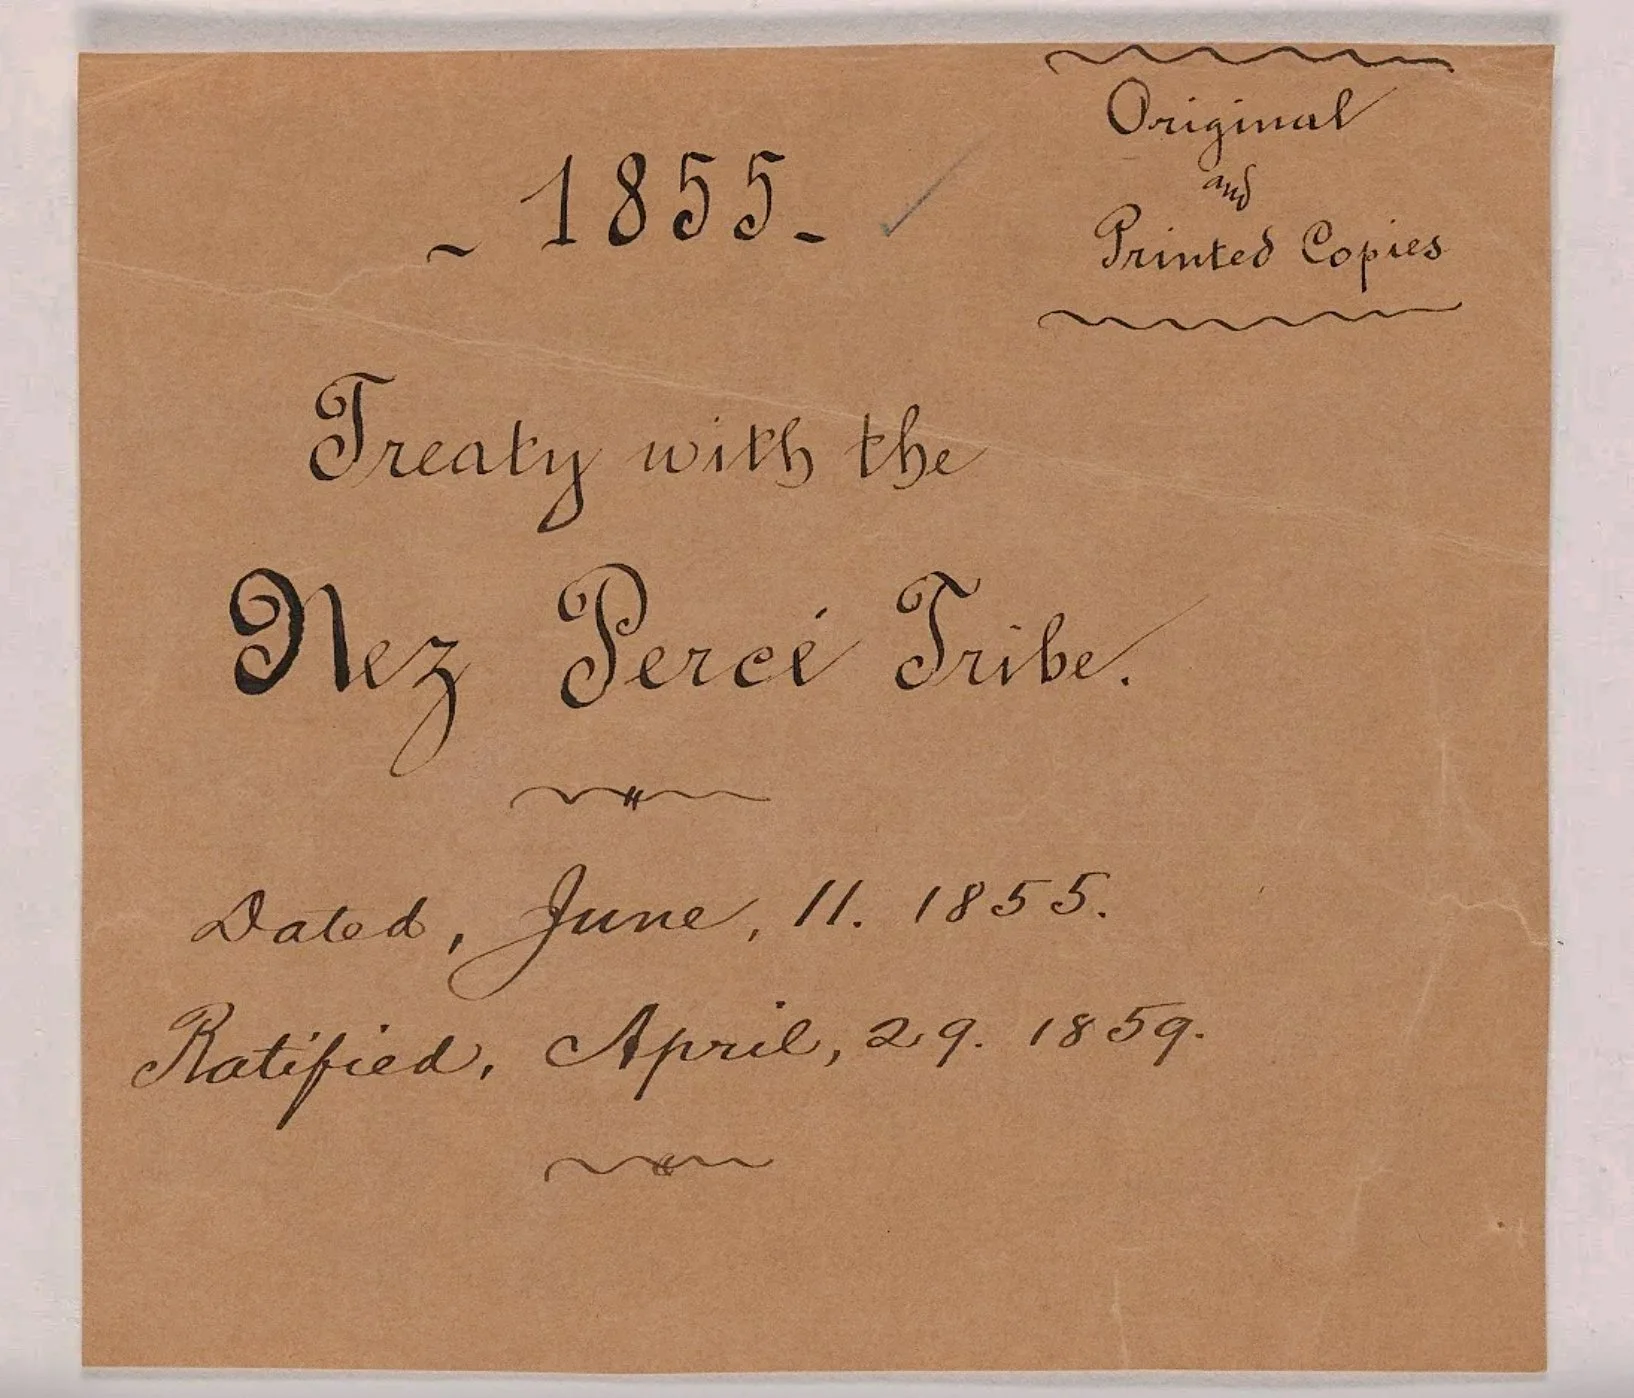 Original
and
Printed Copies
- 1855 -
Treaty with the
Nez Percé Tribe.
Dated, June, 11. 1855.
Ratified, April, 29. 1859.